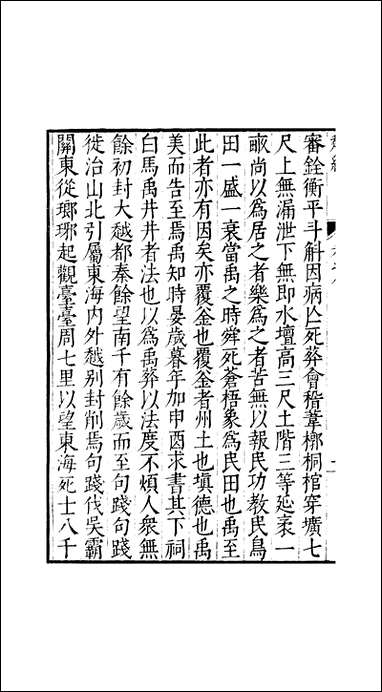 審銓衡平斗斛因病亾死葬會稽葦槨桐棺穿壙七
尺上無漏泄下無即水壇高三尺土階三等延袤一
畝尚以爲居之者樂爲之者苦無以報民功教民鳥
田一盛一衰當禹之時舜死蒼梧象爲民田也禹至
此者亦有因矣亦覆釜也覆釜者州土也塡德也禹
美而告至焉禹知時晏歲暮年加申酉求書其下祠
白馬禹井井者法也以爲禹葬以法度不煩人衆無
餘初封大越都秦餘望南千有餘歲而至句踐句踐
徙治山北引屬東海內外越别封削焉句踐伐吳霸
關東從瑯琊起觀臺臺周七里以望東海死士八千